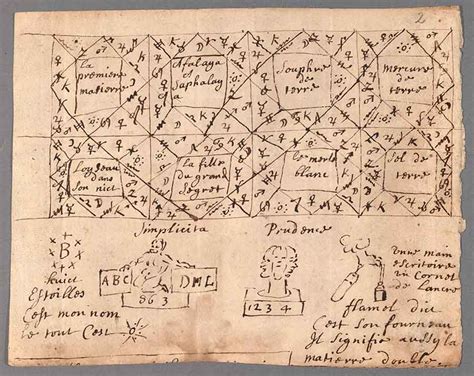 2
La
premiere
matierre
Afalaya
et
Saphalay
a
Souphre
de
terre
Mercure
de
terre
Loyseau
dans
son nict
La fille
du grand
segret
Le merle
blanc
Sel de
terre
Simplicita
Prudence
B
huict
Estoilles
C'est mon nom
le tout C'est
ABC
DML
863
1234
vnne main
escritoire
Cornet
de Lancre
flamel dict
C'est son fourneau
Il signifie aussy la
matierre double